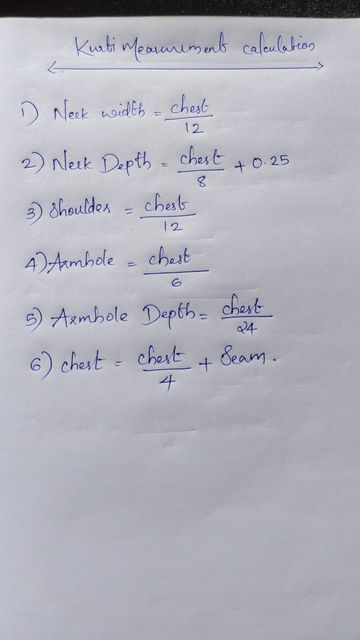 Kurti Measurement calculation
1) Neck width = chest/12
2) Neck Depth = chest/8 + 0.25
3) Shoulder = chest/12
4) Armhole = chest/6
5) Armhole Depth = chest/24
6) chest = chest/4 + Seam.